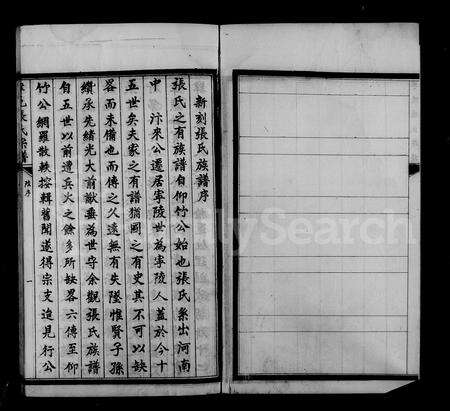 新刻張氏族譜序
張氏之有族譜自仰竹公始也張氏系出河南
中 汴來公遷居寧陵世為寧陵人蓋於今十
五世矣夫家之有譜猶國之有史其不可以缺
畧而未備也而傳之久遠無有失墜惟賢子孫
纘承先緒光大前猷垂為世守余觀張氏族譜
自五世以前遭兵火之餘多所缺畧六傳至仰
竹公網羅散軼按輯舊聞遂得宗支追見行公
張氏宗譜
族序
一
FamilySearch